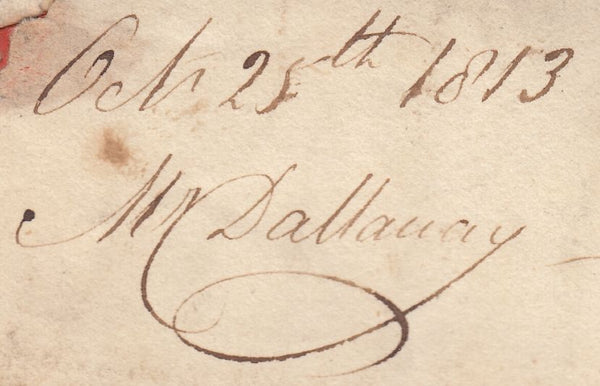 Octr 25th 1813
Mr Dallaway